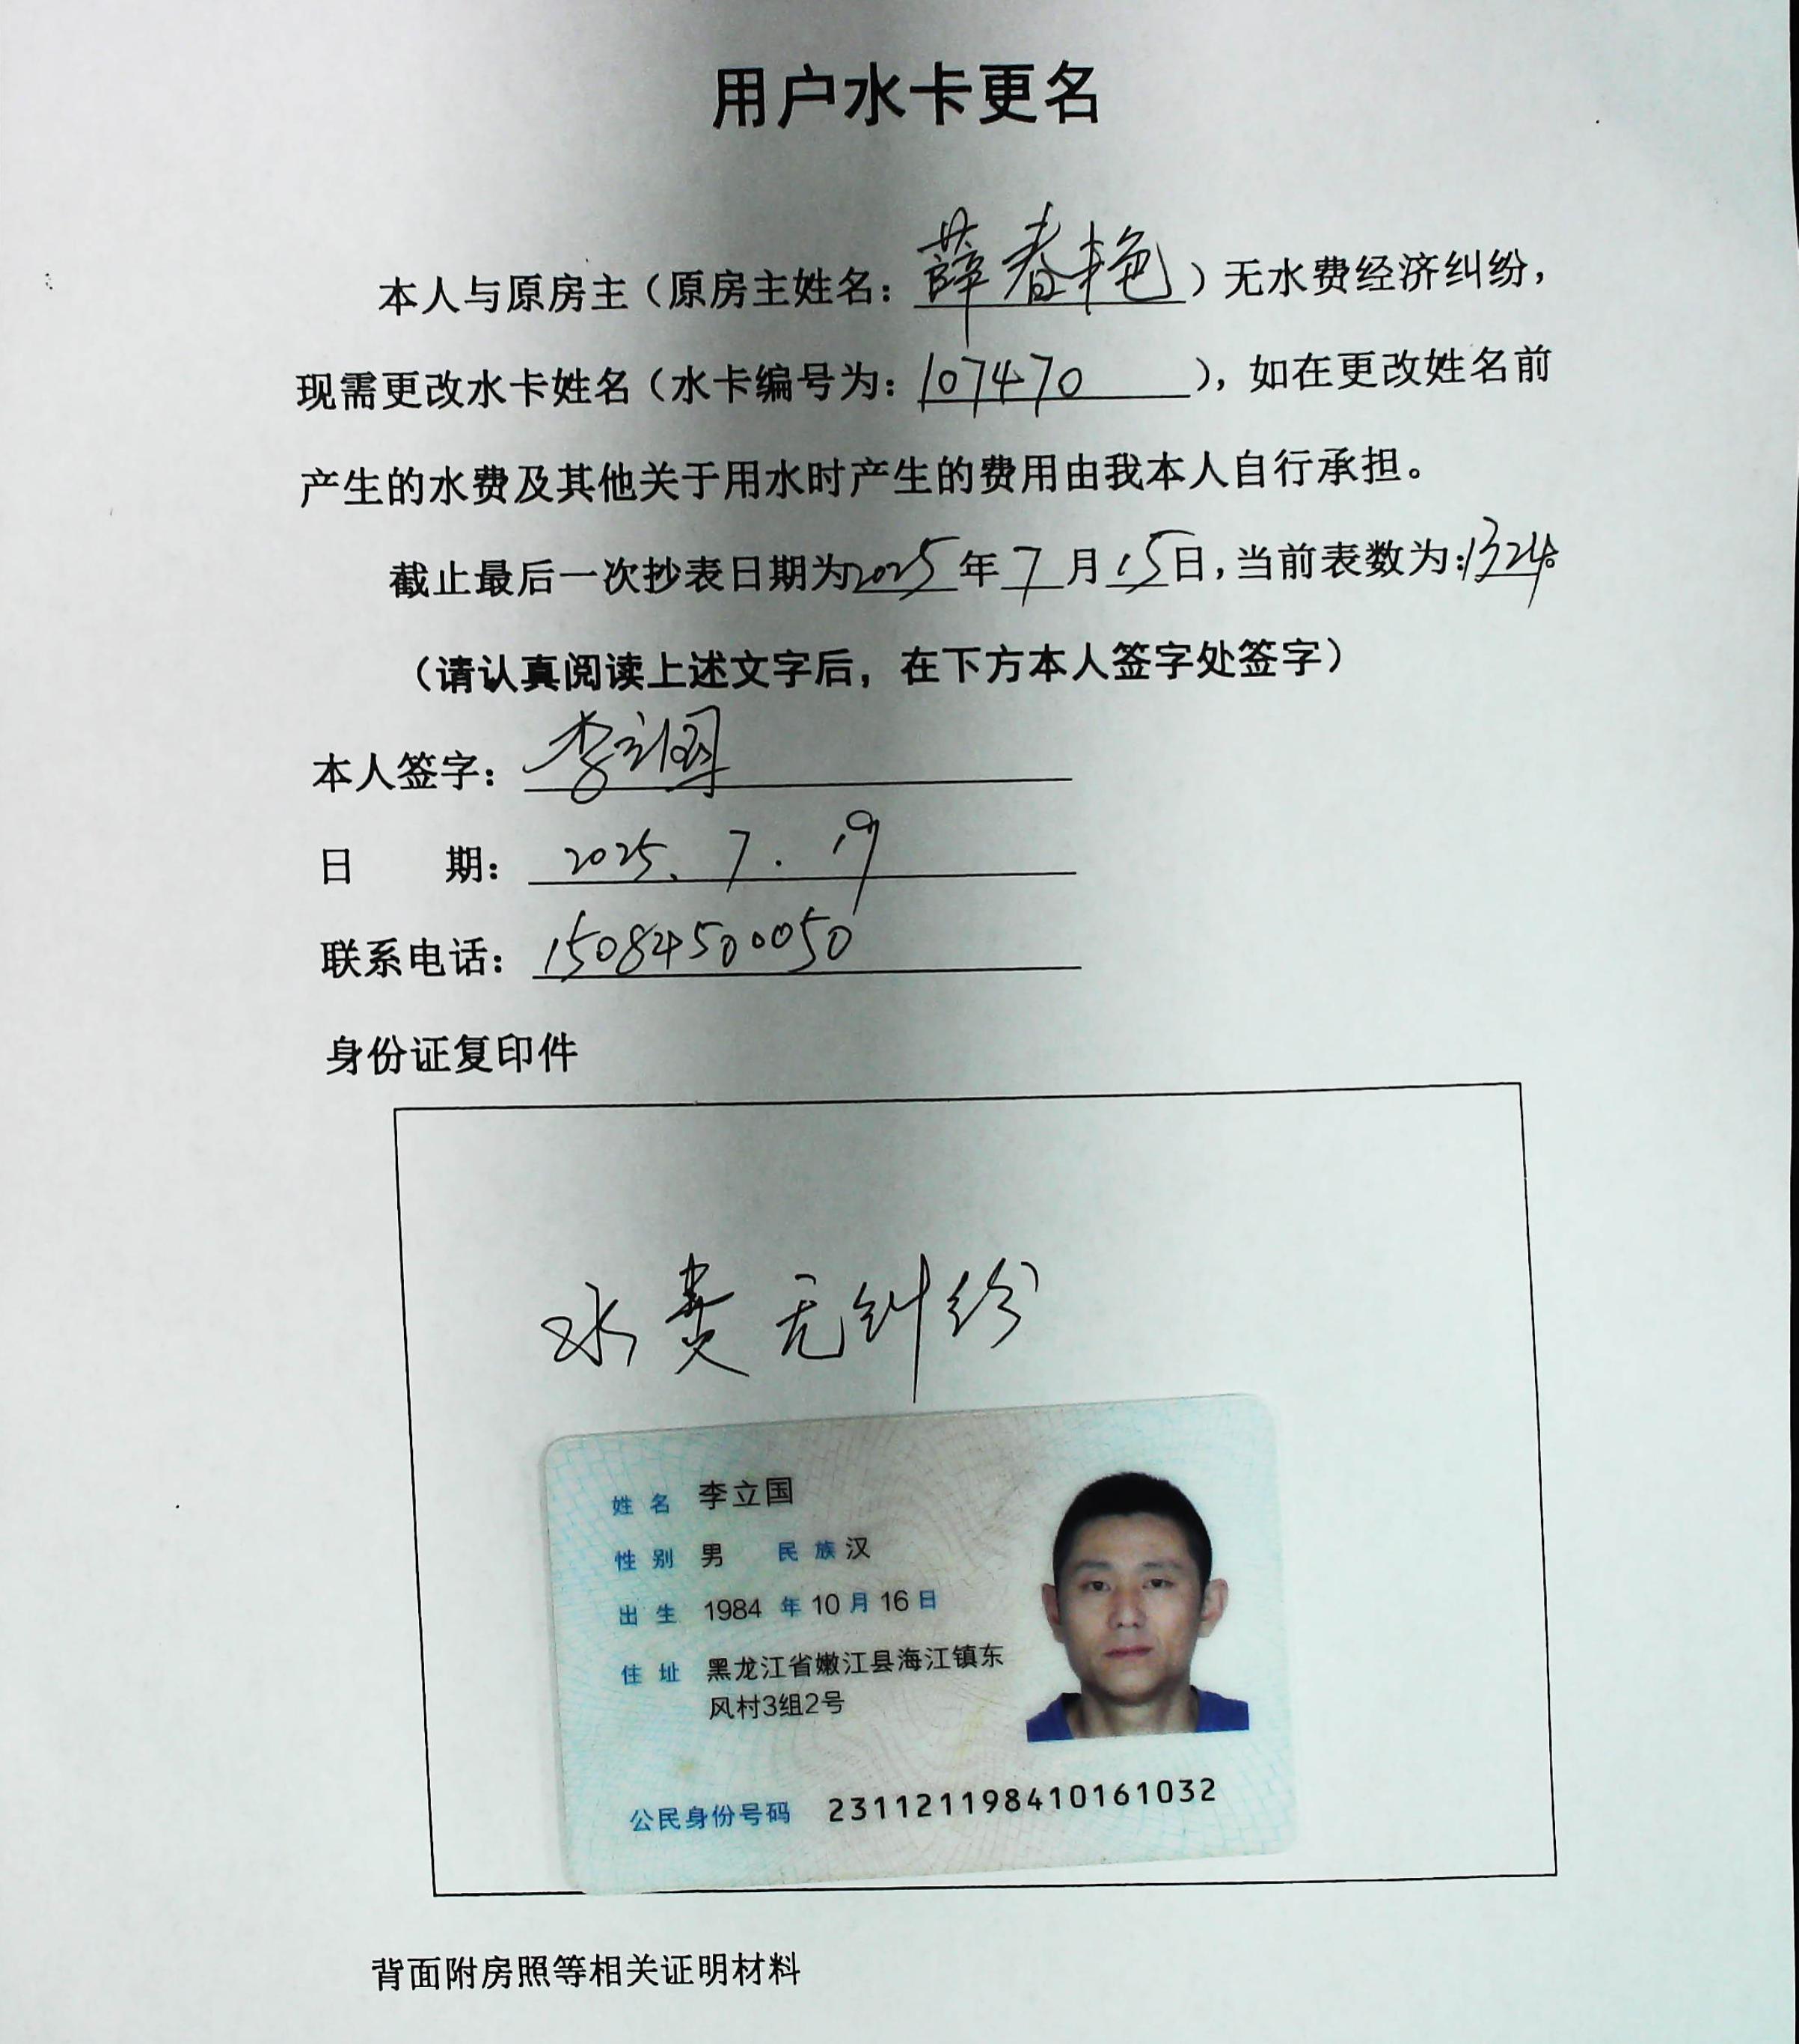 用户水卡更名
本人与原房主（原房主姓名：薛春艳）无水费经济纠纷，
现需更改水卡姓名（水卡编号为：107470），如在更改姓名前
产生的水费及其他关于用水时产生的费用由我本人自行承担。
截止最后一次抄表日期为2025年7月15日，当前表数为：1324。
（请认真阅读上述文字后，在下方本人签字处签字）
本人签字：李立国
日 期：2025.7.19
联系电话：15084500050
身份证复印件
水费无纠纷
姓名 李立国
性别 男 民族 汉
出生 1984 年 10 月 16 日
住址 黑龙江省嫩江县海江镇东
风村3组2号
公民身份号码 231121198410161032
背面附房照等相关证明材料